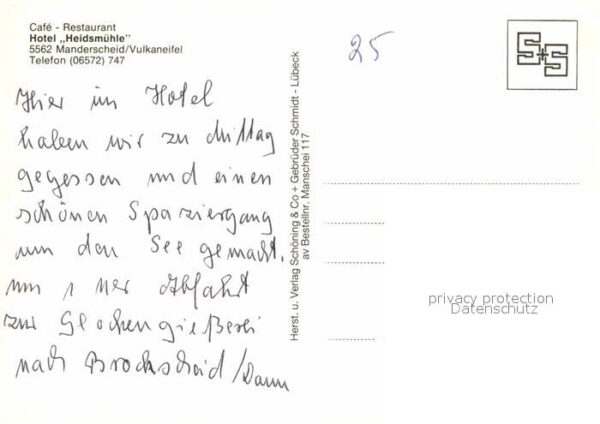 Café - Restaurant
Hotel „Heidsmühle"
5562 Manderscheid/Vulkaneifel
Telefon (06572) 747
Hier im Hotel
haben wir zu Mittag
gegessen und einen
schönen Spaziergang
um den See gemacht.
um 1 Uhr Abfahrt
zur Glockengießerei
nach Brockscheid/Daun
Herst. u. Verlag Schöning & Co + Gebrüder Schmidt - Lübeck
av Bestellnr. Manschei 117
25
S+S
privacy protection
Datenschutz